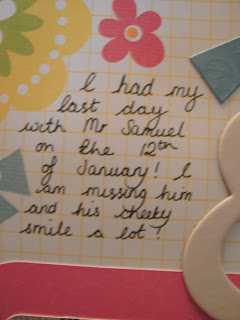 I had my
last day
with Mr Samuel
on the 12th
of January! I
am missing him
and his cheeky
smile a lot!